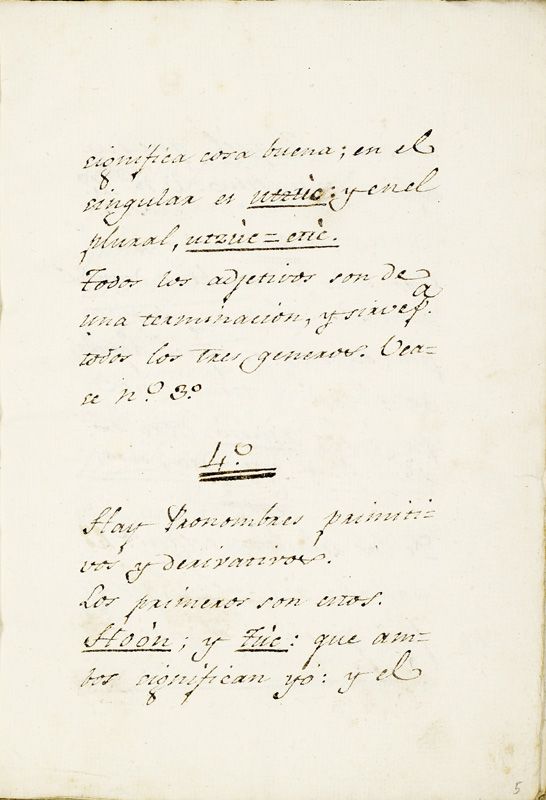 significa cosa buena; en el
singular es utzùc: y en el
plural, utzùc=etìc.
Todos los adjetivos son de
una terminación, y sirve pª.
todos los tres generos. Vea=
se nº. 3º
4º
Hay Pronombres primiti=
vos y derivativos.
Los primeros son estos.
Hoòn; y Tùc: que am=
bos significan yó: y el
5